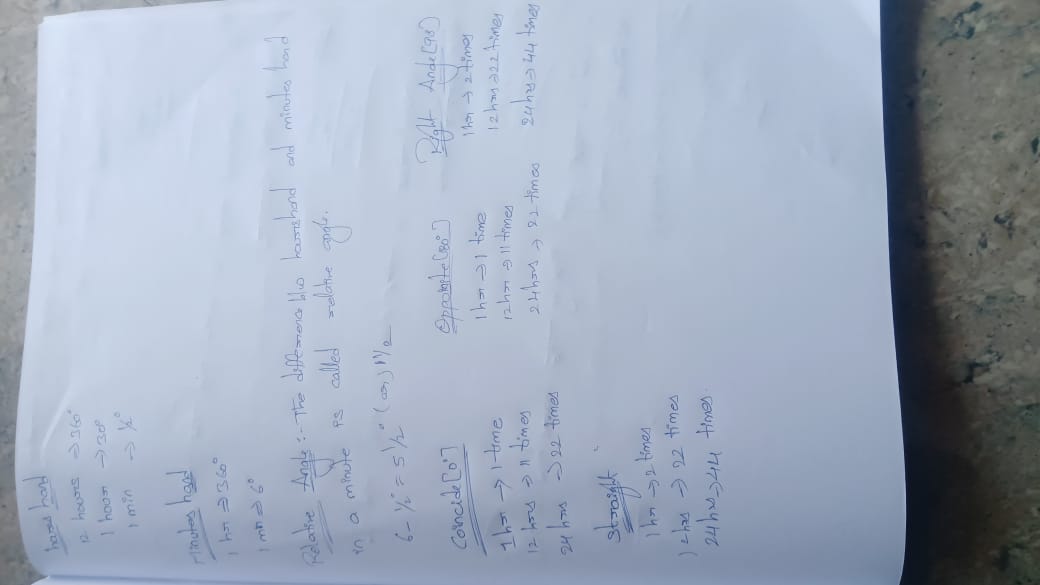 hours hand
12 hours → 360°
1 hour → 30°
1 min → ½°
Minutes hand
1 hr ⇒ 360°
1 min ⇒ 6°
Relative Angle :- The difference b/w hourshand and minutes hand
in a minute is called relative angle.
6 - ½° = 5 ½° (or) 11/2
Coincide [0°]
1 hr → 1 time
12 hrs → 11 times
24 hrs → 22 times
Opposite [180°]
1 hr → 1 time
12 hr → 11 times
24 hrs → 22 times
Right Angle [90°]
1 hr → 2 times
12 hrs → 22 times
24 hrs → 44 times
Straight
1 hr → 2 times
12 hrs → 22 times
24 hrs → 44 times.